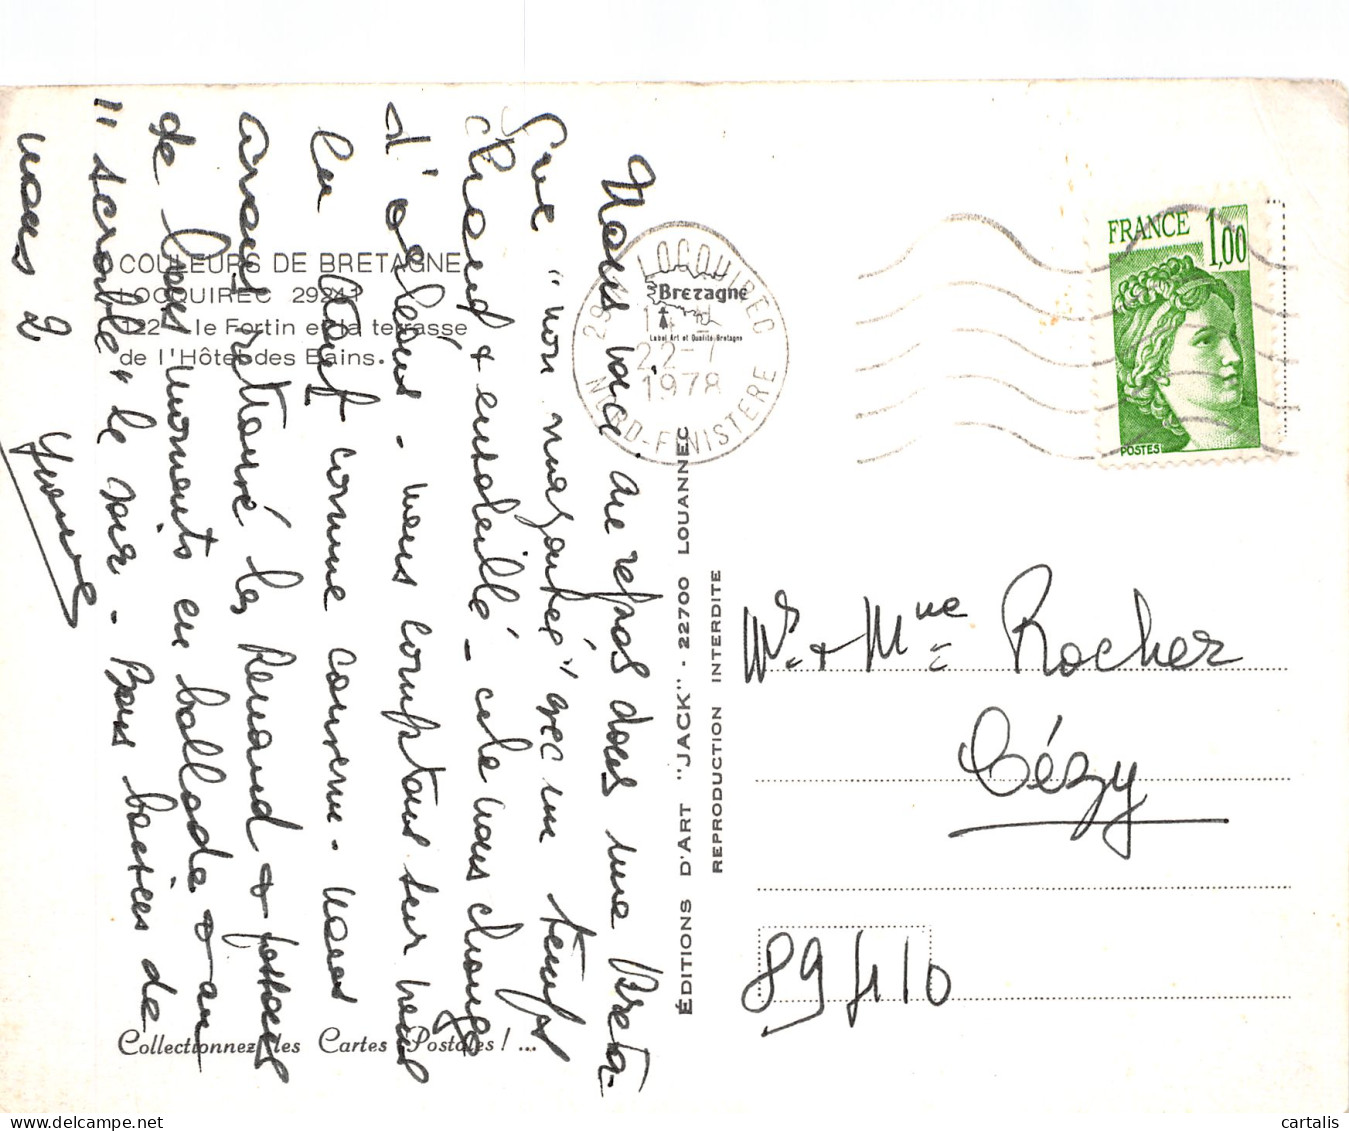 COULEURS DE BRETAGNE
LOCQUIREC 29241
122 - le Fortin et la terrasse
de l'Hôtel des Bains.
Nous voici au repos dans une Breta-
gne "non mazoutée" avec un temps
chaud & ensoleillé - cela nous change
d'orléans - nous comptons sur vous
la comme convenu - nous
avons retrouvé les Renaud & passons
de bons moments en ballade & au
"scrabble" le soir - Bons baisers de
nous 2
Yvonne
Collectionnez les Cartes Postales ! ...
ÉDITIONS D'ART "JACK" - 22700 LOUANNEC
REPRODUCTION INTERDITE
Bretagne
Label Art et Qualité Bretagne
LOCQUIREC
22-7
1978
NORD-FINISTERE
FRANCE 1,00
POSTES
Mr & Mme Rocher
Cézy
89410
cartalis